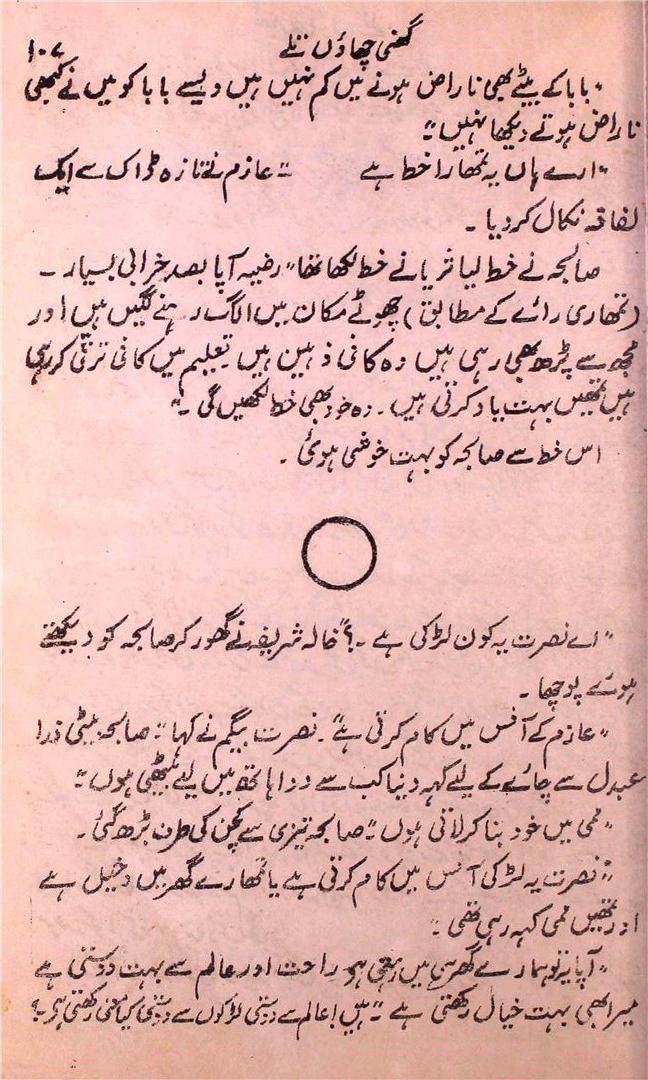 گھنی چھاؤں تلے
۱۰۷
"بابا کے بیٹے بھی ناراض ہونے میں کم نہیں ہیں ویسے بابا کو میں نے کبھی
ناراض ہوتے دیکھا نہیں"
"ارے ہاں یہ تمھارا خط ہے" عازم نے تازہ ڈاک سے ایک
لفافہ نکال کر دیا۔
صالحہ نے خط لیا ثریا نے خط لکھا تھا "رضیہ آپا بصد خرابی بسیار۔
(تمھاری رائے کے مطابق) چھوٹے مکان میں الگ رہنے لگیں ہیں اور
مجھ سے پڑھ بھی رہی ہیں وہ کافی ذہین ہیں تعلیم میں کافی ترقی کر رہی
ہیں تمھیں بہت یاد کرتی ہیں۔ وہ خود بھی خط لکھیں گی۔"
اس خط سے صالحہ کو بہت خوشی ہوئی۔
"اے نصرت یہ کون لڑکی ہے۔؟" خالہ شریفہ نے گھور کر صالحہ کو دیکھتے
ہوئے پوچھا۔
"عازم کے آفس میں کام کرتی ہے"۔ نصرت بیگم نے کہا "صالحہ بیٹی ذرا
عبدل سے چائے کے لیے کہہ دینا کب سے دوا ہاتھ میں لیے بیٹھی ہوں"
"ممی میں خود بنا کر لاتی ہوں" صالحہ تیزی سے کچن کی طرف بڑھ گئی۔
"نصرت یہ لڑکی آفس میں کام کرتی ہے یا تمھارے گھر میں دخیل ہے
اور تمھیں ممی کہہ رہی تھی۔"
"آپا یہ تو ہمارے گھر ہی میں رہتی ہے راحت اور عالم سے بہت دوستی ہے
میرا بھی بہت خیال رکھتی ہے" "ہیں! عالم سے دوستی لڑکوں سے دوستی کیا معنی رکھتی ہے۔؟